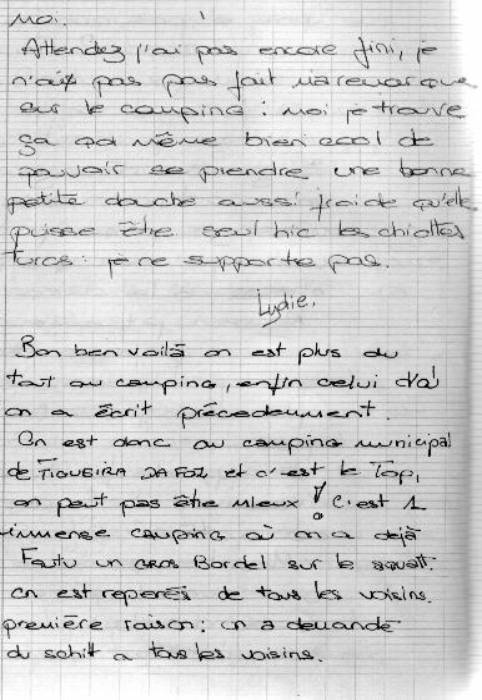 Moi.
Attendez j'ai pas encore fini, je
n'ai pas pas fait ma remarque
sur le camping : moi je trouve
ça qd même bien cool de
pouvoir se prendre une bonne
petite douche aussi froide qu'elle
puisse être seul hic les chiottes
turcs : je ne supporte pas.
Lydie.
Bon ben voilà on est plus du
tout au camping, enfin celui d'où
on a écrit précedemment.
On est donc au camping municipal
de FIGUEIRA DA FOZ et c'est le Top,
on peut pas être mieux ! C'est 1
immense camping où on a dejà
Foutu un GROS Bordel sur le squatt.
on est reperés de tous les voisins.
première raison : on a demandé
du schit a tous les voisins.